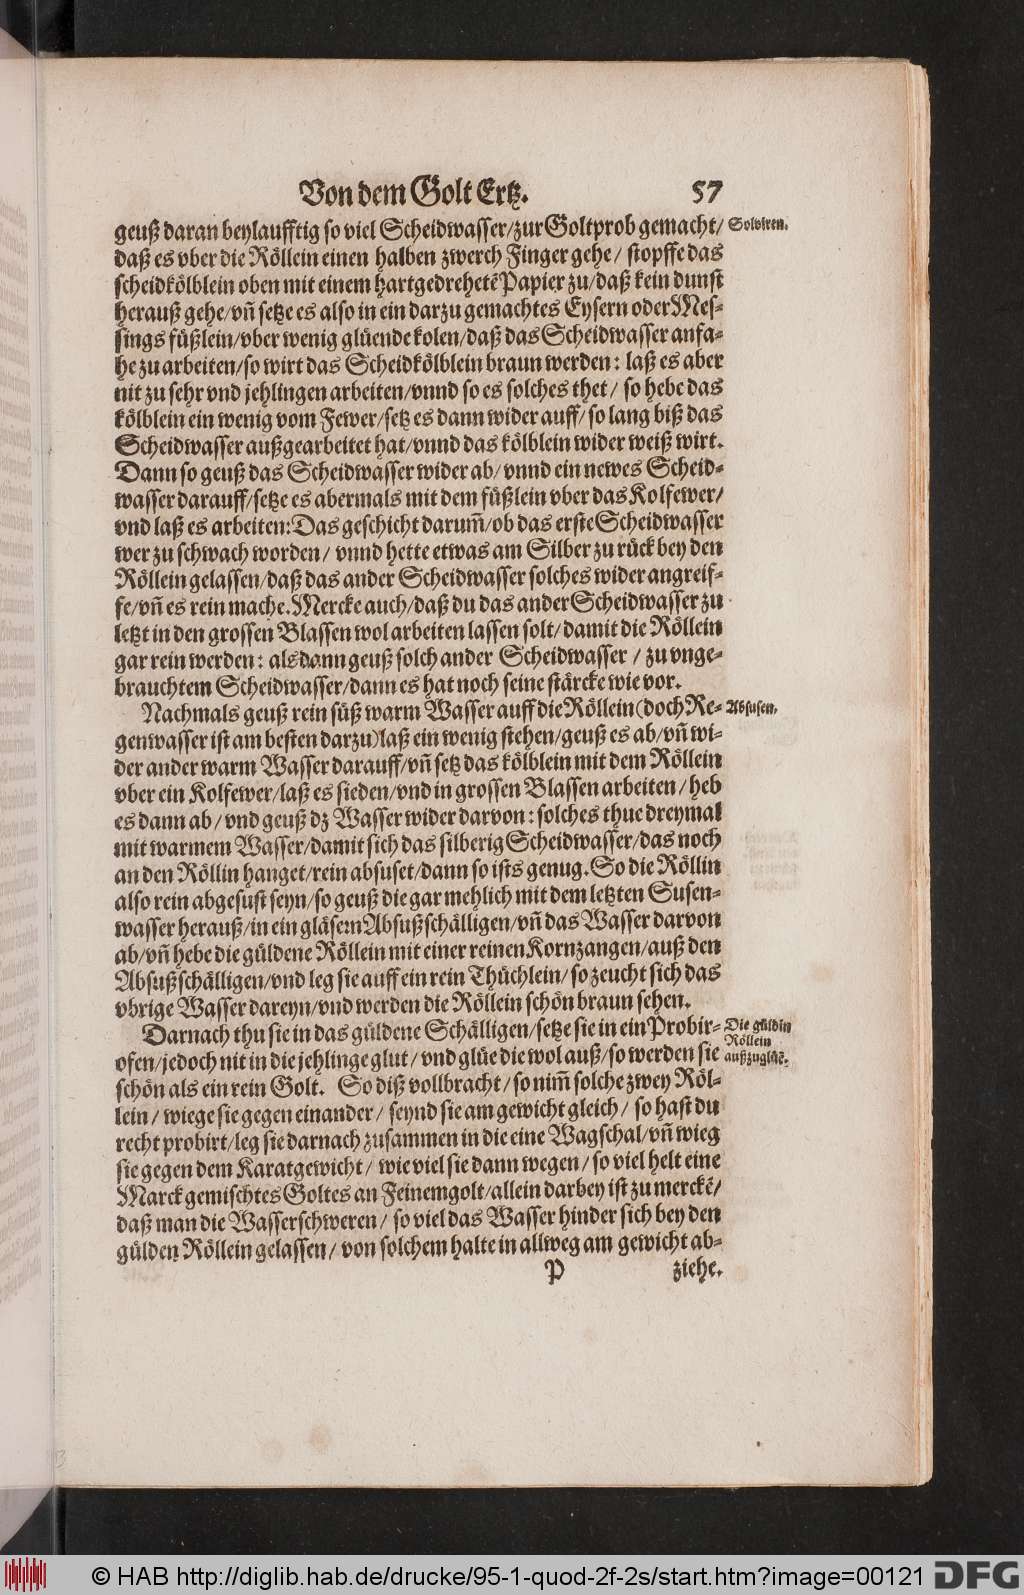 Von dem Golt Ertz. 57
geuß daran beylaufftig so viel Scheidwasser/zur Goltprob gemacht/ Solviren.
daß es vber die Röllein einen halben zwerch Finger gehe/ stopffe das
scheidkölblein oben mit einem hartgedrehetẽ Papier zu/daß kein dunst
herauß gehe/vñ setze es also in ein darzu gemachtes Eysern oder Mes-
sings füßlein/vber wenig glüende kolen/daß das Scheidwasser anfa-
he zu arbeiten/so wirt das Scheidkölblein braun werden: laß es aber
nit zu sehr vnd jehlingen arbeiten/vnnd so es solches thet/ so hebe das
kölblein ein wenig vom Fewer/setz es dann wider auff/so lang biß das
Scheidwasser außgearbeitet hat/vnnd das kölblein wider weiß wirt.
Dann so geuß das Scheidwasser wider ab/ vnnd ein newes Scheid-
wasser darauff/setze es abermals mit dem füßlein vber das Kolfewer/
vnd laß es arbeiten: Das geschicht darum̃/ob das erste Scheidwasser
wer zu schwach worden/ vnnd hette etwas am Silber zu rück bey den
Röllein gelassen/daß das ander Scheidwasser solches wider angreif-
fe/vñ es rein mache. Mercke auch/daß du das ander Scheidwasser zu
letzt in den grossen Blassen wol arbeiten lassen solt/damit die Röllein
gar rein werden: als dann geuß solch ander Scheidwasser / zu vnge-
brauchtem Scheidwasser/dann es hat noch seine stärcke wie vor.
Nachmals geuß rein süß warm Wasser auff die Röllein (doch Re- Absusen.
genwasser ist am besten darzu) laß ein wenig stehen/geuß es ab/vñ wi-
der ander warm Wasser darauff/vñ setz das kölblein mit dem Röllein
vber ein Kolfewer/laß es sieden/vnd in grossen Blassen arbeiten/heb
es dann ab/vnd geuß dz Wasser wider darvon: solches thue dreymal
mit warmem Wasser/damit sich das silberig Scheidwasser/das noch
an den Röllin hanget/rein absuset/dann so ists genug. So die Röllin
also rein abgesust seyn/so geuß die gar mehlich mit dem letzten Susen-
wasser herauß/in ein gläsern Absußschälligen/vñ das Wasser darvon
ab/vñ hebe die güldene Röllein mit einer reinen Kornzangen/auß den
Absußschälligen/vnd leg sie auff ein rein Thüchlein/so zeucht sich das
vbrige Wasser dareyn/vnd werden die Röllein schön braun sehen.
Darnach thu sie in das güldene Schälligen/setze sie in ein Probir- Die güldin
Röllein
ofen/jedoch nit in die jehlinge glut/ vnd glüe die wol auß/so werden sie außzuglüẽ.
schön als ein rein Golt. So diß vollbracht/so nim̃ solche zwey Röl-
lein/ wiege sie gegen einander/ seynd sie am gewicht gleich/ so hast du
recht probirt/leg sie darnach zusammen in die eine Wagschal/vñ wieg
sie gegen dem Karatgewicht/ wie viel sie dann wegen/so viel helt eine
Marck gemischtes Goltes an Feinemgolt/allein darbey ist zu merckẽ/
daß man die Wasserschweren/ so viel das Wasser hinder sich bey den
gülden Röllein gelassen/ von solchem halte in allweg am gewicht ab-
P ziehe.
© HAB http://diglib.hab.de/drucke/95-1-quod-2f-2s/start.htm?image=00121 DFG